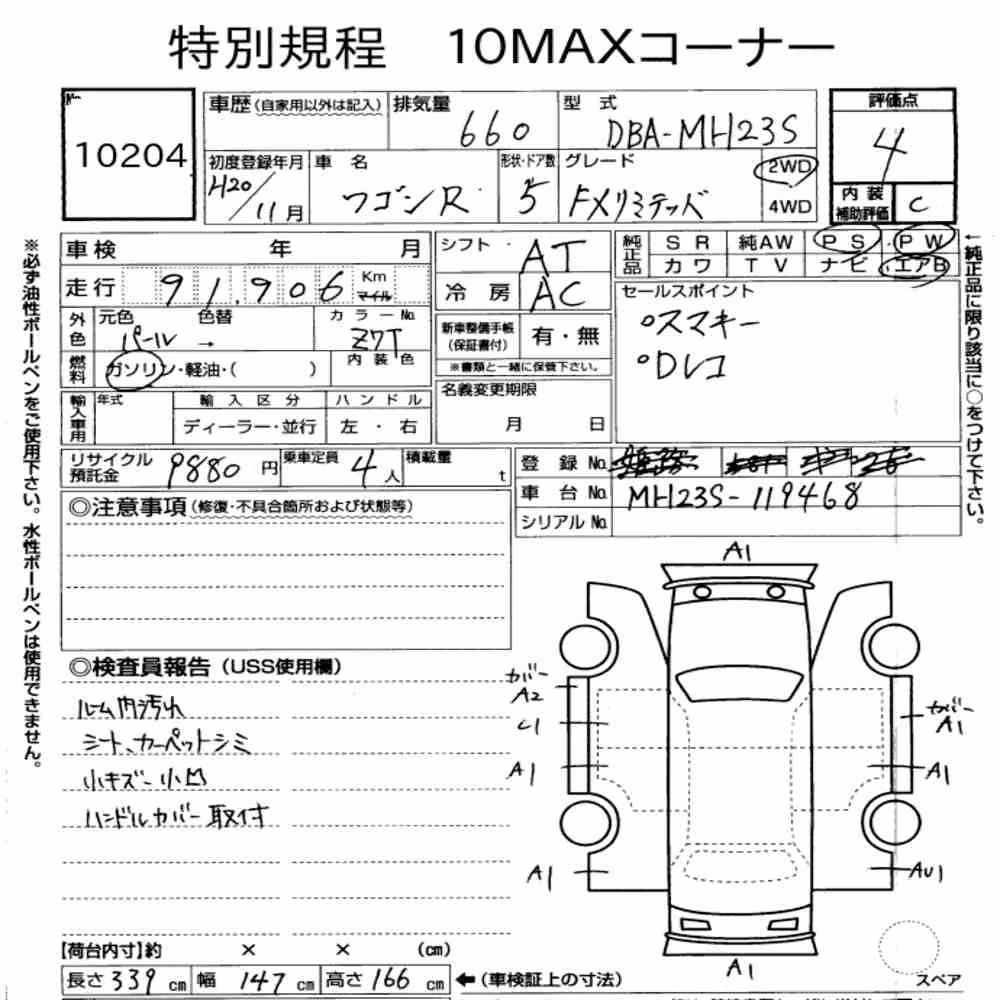 特別規程 10MAXコーナー
No.
10204
車歴(自家用以外は記入)
排気量
660
型 式
DBA-MH23S
評価点
4
初度登録年月
H20/11月
車 名
ワゴンR
形状・ドア数
5
グレード
FXリミテッド
2WD
4WD
内装
補助評価
C
車検 年 月
走行 91,906 Km
マイル
外色 元色 色替 カラーNo
パール → Z7T
燃料 ガソリン・軽油・( ) 内装色
輸入車用 年式 輸入区分 ハンドル
ディーラー・並行 左・右
シフト・ AT
冷房 AC
新車整備手帳
(保証書付)
有・無
※書類と一緒に保管下さい。
名義変更期限
月 日
純正品 SR 純AW PS PW
カワ TV ナビ エアB
セールスポイント
○スマキー
○Dレコ
←純正品に限り該当に○をつけて下さい。
※必ず油性ボールペンをご使用下さい。水性ボールペンは使用できません。
リサイクル
預託金
9880円
乗車定員 4人
積載量 t
登録No.
車台No. MH23S-119468
シリアルNo.
◎注意事項(修復・不具合箇所および状態等)
◎検査員報告(USS使用欄)
ルーム内汚れ
シート、カーペットシミ
小キズ 小凹
ハンドルカバー取付
A1
カバー
A2
C1
A1
A1
カバー
A1
A1
AU1
A1
スペア
【荷台内寸】約 × × (cm)
長さ 339 cm 幅 147 cm 高さ 166 cm ←(車検証上の寸法)